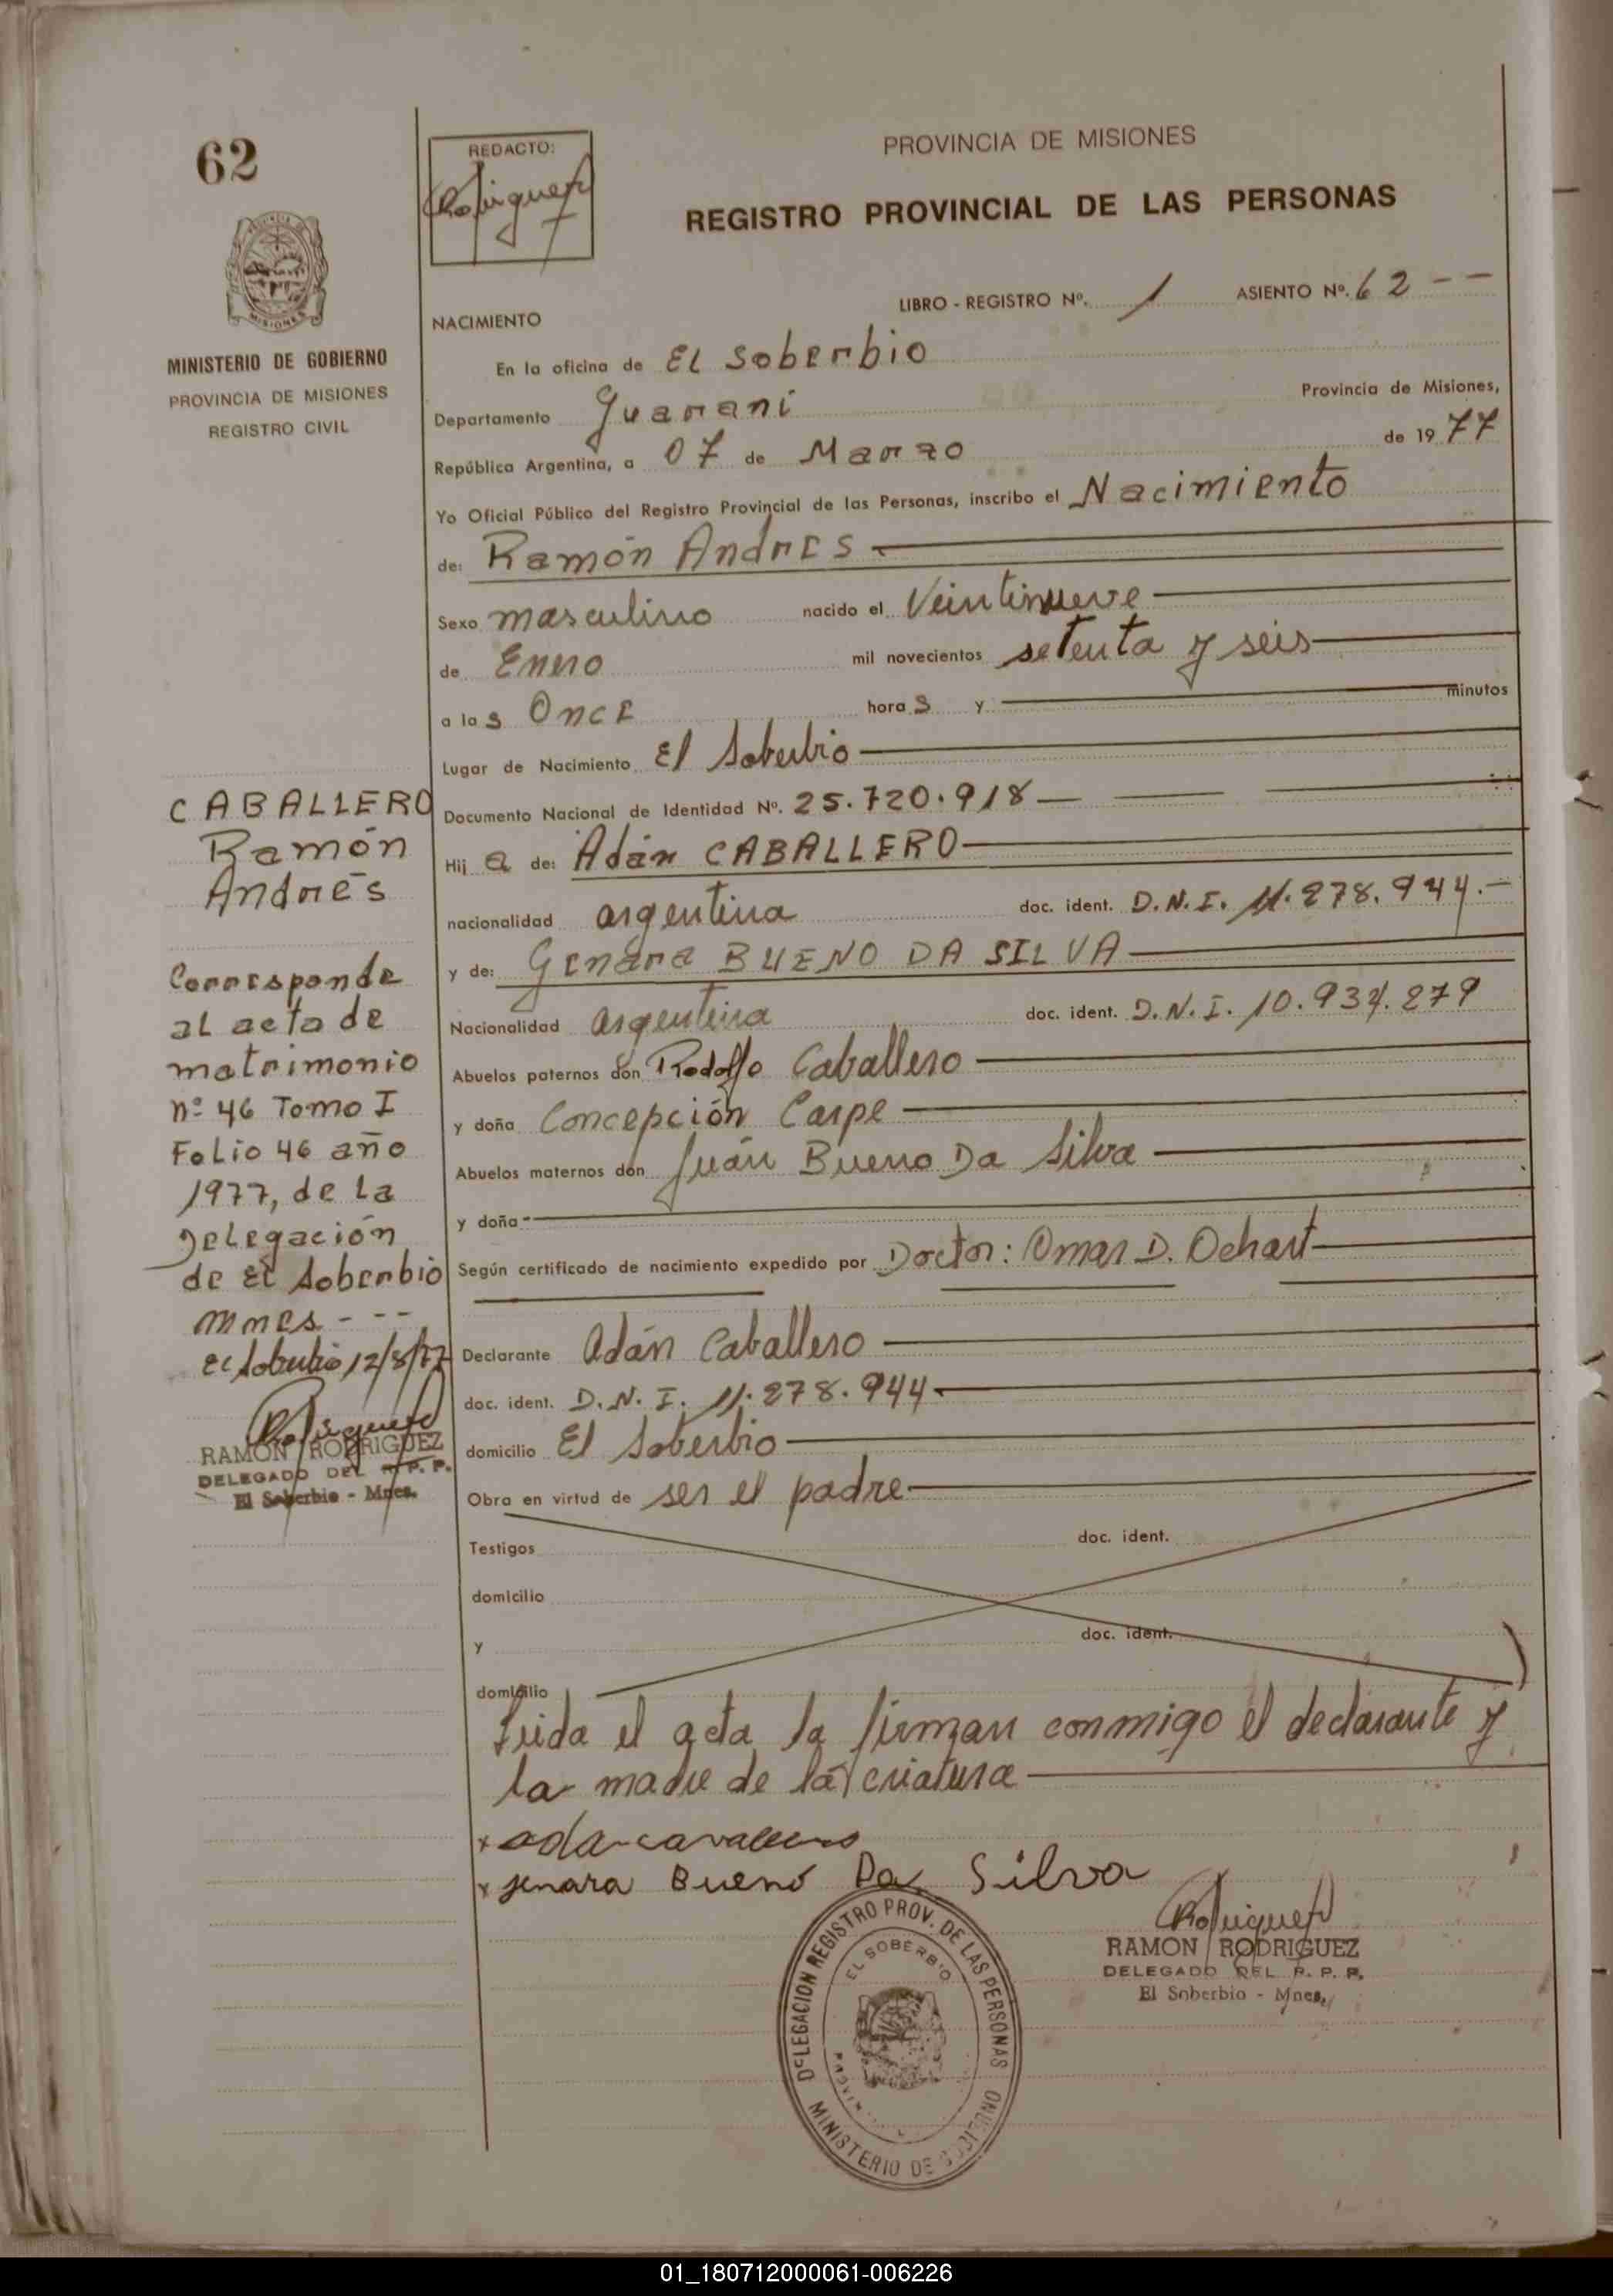 62
REDACTO:
PROVINCIA DE MISIONES
REGISTRO PROVINCIAL DE LAS PERSONAS
LIBRO - REGISTRO Nº. 1 ASIENTO Nº. 62 - -
NACIMIENTO
En la oficina de El Soberbio
Departamento Guaraní Provincia de Misiones,
República Argentina, a 07 de Marzo de 1977
Yo Oficial Público del Registro Provincial de las Personas, inscribo el Nacimiento
de: Ramón Andrés
Sexo masculino nacido el Veintinueve
de Enero mil novecientos setenta y seis
a las Once horas y minutos
Lugar de Nacimiento El Soberbio
Documento Nacional de Identidad Nº. 25.720.918
Hij a de: Adán CABALLERO
nacionalidad argentina doc. ident. D.N.I. 11.278.944.-
y de: Genára BUENO DA SILVA
Nacionalidad argentina doc. ident. D.N.I. 10.934.279
Abuelos paternos don Rodolfo Caballero
y doña Concepción Carpe
Abuelos maternos don Juán Bueno Da Silva
y doña
Según certificado de nacimiento expedido por Doctor: Omar D. Ochart
Declarante Adán Caballero
doc. ident. D.N.I. 11.278.944
domicilio El Soberbio
Obra en virtud de ser el padre
Testigos doc. ident.
domicilio
y doc. ident.
domicilio
Leida el acta la firman conmigo el declarante y
la madre de la criatura
x
x Jenara Bueno Da Silva
RAMON RODRIGUEZ
DELEGADO DEL R. P. P.
El Soberbio - Mnes.
DELEGACION REGISTRO PROV. DE LAS PERSONAS
EL SOBERBIO
MINISTERIO DE GOBIERNO
MISIONES
MINISTERIO DE GOBIERNO
PROVINCIA DE MISIONES
REGISTRO CIVIL
CABALLERO
Ramón
Andrés
Corresponde
al acta de
matrimonio
nº 46 Tomo I
Folio 46 año
1977, de la
Delegación
de El Soberbio
Mnes - - -
El Soberbio 12/8/77
RAMON RODRIGUEZ
DELEGADO DEL R. P. P.
El Soberbio - Mnes.
01_180712000061-006226